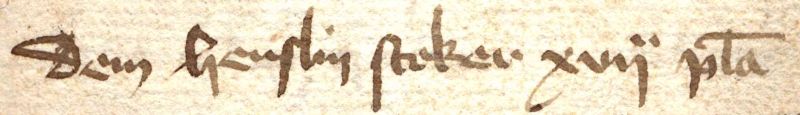 Dem henslin stoker xvij pla